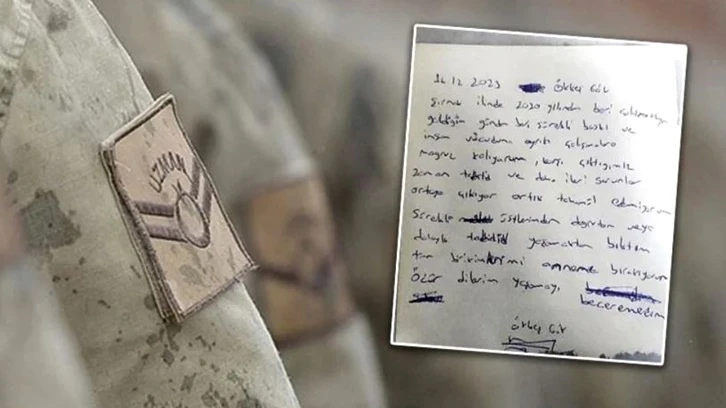 UZMAN
2023
Şırnak ilinde 2020 yılından beri
geldiğim günden beri sürekli baskı ve
insan vücuduna aykırı çalışmalara
maruz kalıyorum, karşı çıktığımız
zaman tehdid ve daha ileri sorunlar
ortaya çıkıyor artık edemiyorum
Sürekli üstlerimden doğrudan veya
tehdid yaşamaktan bıktım
tüm birikimlerimi anneme bırakıyorum
Özür dilerim yaşamayı
beceremedim